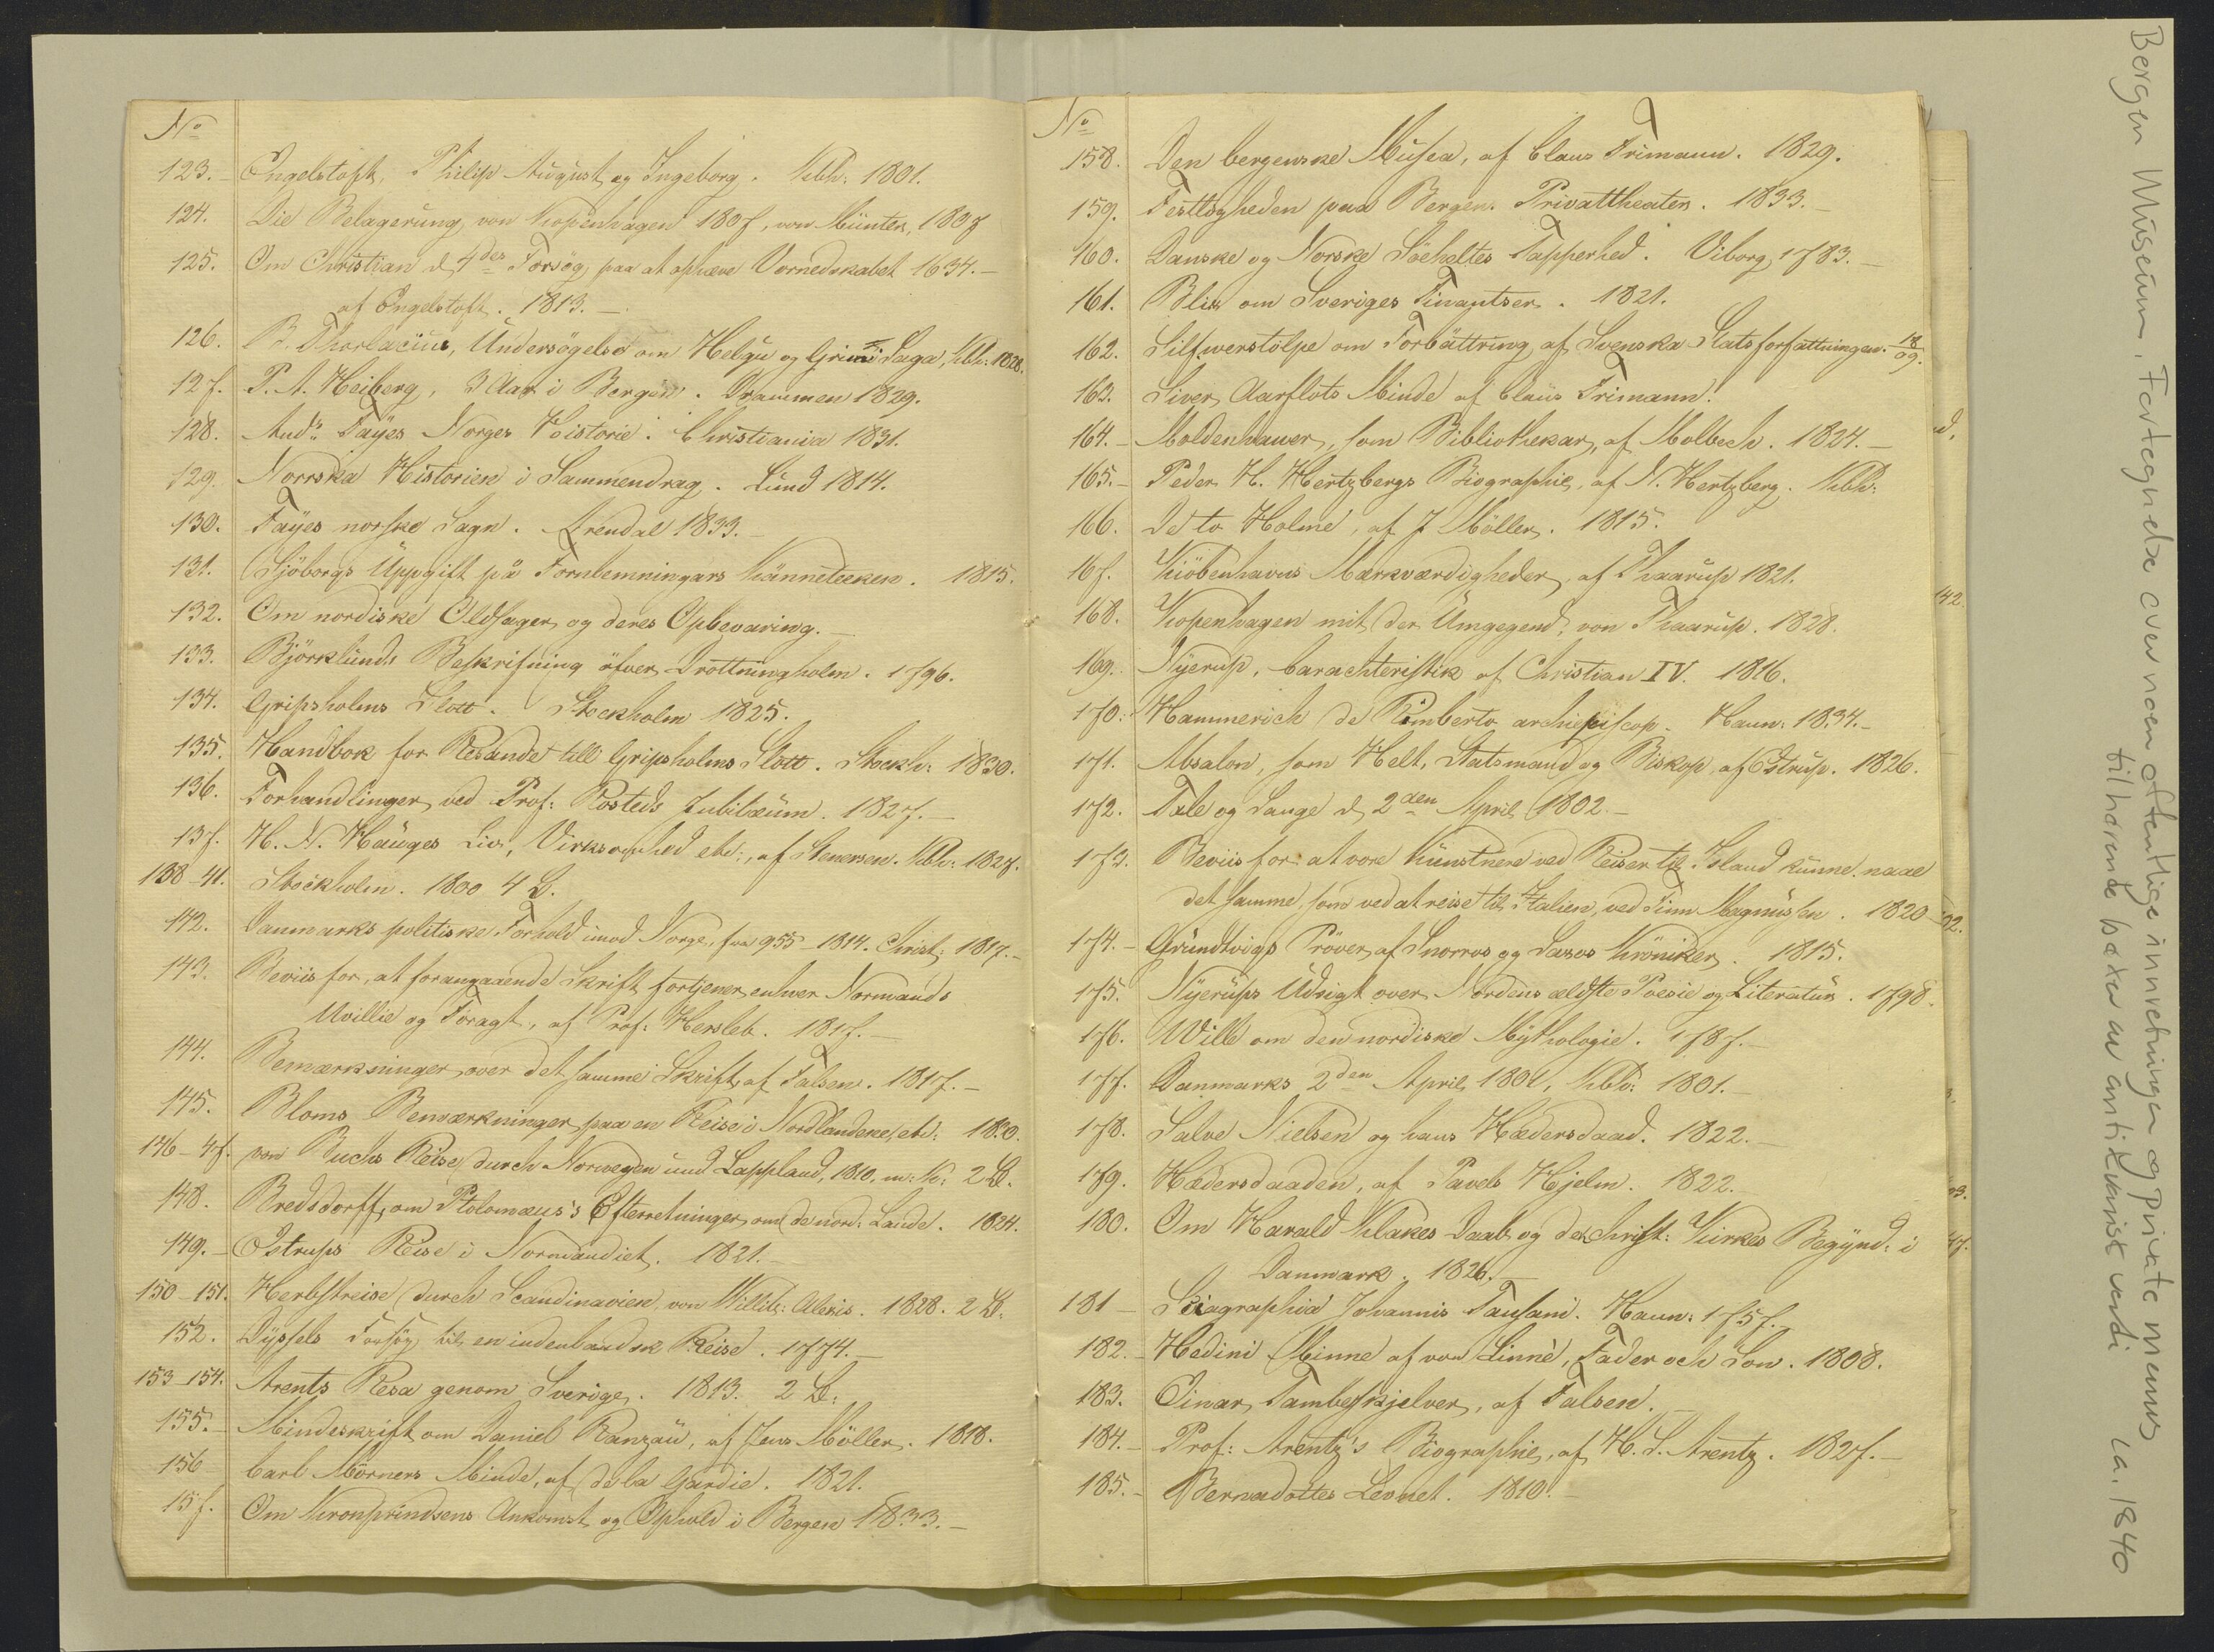 No
123. Engelstoft, Philip August og Ingeborg. Kbh: 1801.
124. Die Belagerung von Kopenhagen 1807, von Münter, 1807
125. Om Christian d. 4des Forsög paa at ophæve Vornedskabet 1634.—
af Engelstoft. 1813.—
126. B. Thorlacius, Undersögelse om Helgu og Grims Saga, Kbh: 1828.
127. P. A. Heiberg, 3 Aar i Bergen. Drammen 1829.
128. Andr. Fayes Norges Historie. Christiania 1831.
129. Norrska Historien i Sammendrag. Lund 1814.
130. Fayes norske Sagn. Arendal 1833.—
131. Sjöborgs Uppgift på Fornlemningars Kännetecken. 1815.
132. Om nordiske Oldsager og deres Opbevaring.—
133. Björklunds Beskrifning öfver Drottningholm. 1796.
134. Gripsholms Slott. Stockholm 1825.
135. Handbok for Resande till Gripsholms Slott. Stockh: 1830.
136. Forhandlinger ved Prof: Rosteds Jubilæum. 1827.—
137. H. N. Hauges Liv, Virksomhed etc:, af Stenersen. Kbh: 1827.
138-41. Stockholm. 1800 4 B.
142. Danmarks politiske Forhold imod Norge, fra 955-1814. Christ: 1817.—
143. Beviis for, at forangaaende Skrift fortjener enhver Normands
Uvillie og Foragt, af Prof: Hersleb. 1817.—
144. Bemærkninger over det samme Skrift, af Falsen. 1817.—
145. Bloms Bemærkninger paa en Reise i Nordlandene, etc: 1830.
146-47. von Buchs Reise durch Norwegen und Lappland, 1810, m: K: 2 B.
148. Bredsdorff, om Ptolomæus's Efterretninger om de nord: Lande. 1824.
149.— Estrups Reise i Normandiet. 1821.—
150-151. Herbstreise durch Scandinavien, von Willib: Alexis. 1828. 2 B:
152. Dyssels Forsög til en indenlandsk Reise. 1774.—
153-154. Arents Resa genom Sverige. 1813. 2 B:
155.— Mindeskrift om Daniel Ranzau, af Jens Möller. 1818.
156 Carl Mörners Minde, af de la Gardie. 1821.
157. Om Kronprindsens Ankomst og Ophold i Bergen 1833.—
No
158. Den bergenske Musea, af Claus Frimann. 1829.
159. Festlygheden paa Bergen. Privattheater. 1833.—
160. Danske og Norske Söeheltes Tapperhed. Viborg 1783.—
161. Blik om Sveriges Finantser. 1821.
162. Silfwerstolpe om Forbättring af Svenska Statsforfattningen. 18/09.
163. Siver Aarflots Minde af Claus Frimann.
164.— Moldenhawer, som Bibliothekar, af Molbech. 1824.—
165.— Peder H. Hertzbergs Biographie, af N. Hertzberg. Kbh:
166. De to Holme, af J Möller. 1815.
167. Kiöbenhavns Mærkværdigheder, af Thaarup 1821.
168. Kopenhagen mit der Umgegend, von Thaarup. 1828.
169. Nyerup, Carachteristik af Christian IV. 1816.
170.- Hammerich de Rimberto archiepiscop. Haun: 1834.—
171. Absalon, som Helt, Statsmand og Biskop, af Estrup. 1826.
172. Tale og Sange d. 2den April 1802.—
173. Beviis for at vore Kunstnere ved Reiser til Island kunne naae
det samme, som ved at reise til Italien, ved Finn Magnussen. 1820
174.— Grundtvigs Pröver af Snorros og Saxos Kröniker. 1815.
175. Nyerups Udsigt over Nordens ældste Poesie og Literatur. 1798.
176. Wille om den nordiske Mythologie. 1787.—
177. Danmarks 2den April 1801, Kbh: 1801.—
178. Salve Nielsen og hans Hædersdaad. 1822.—
179. Hædersdaaden, af Pavels Hjelm. 1822.
180. Om Harald Klakes Daab og den Christ: Kirkes Begynd: i
Danmark. 1826.—
181— Skiagraphia Johannis Tausani. Haun: 1757.—
182.— Hedini Minne af von Linné, Fader och Son. 1808.
183. Einar Tambeskjelver, af Falsen.—
184.— Prof: Arentz's Biographie, af H. S. Arentz. 1827.—
185.— Bernadottes Levnet. 1810.—
142.
Bergen Museum. Fortegnelse over noen offentlige innretninger og private menns
tilhørende bøker av antikvarisk verdi ca. 1840